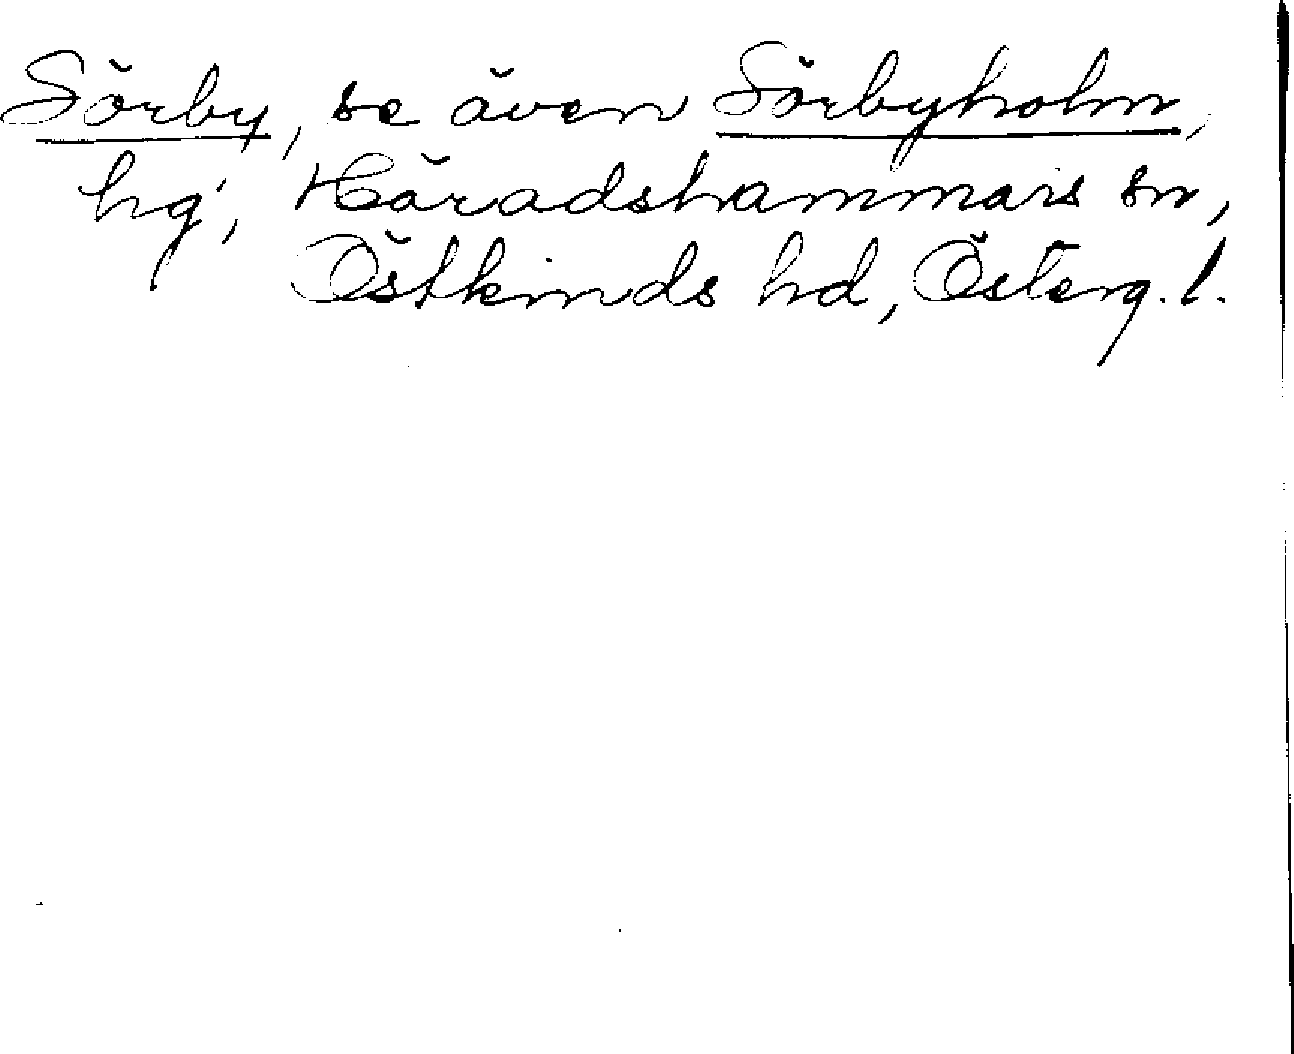 Sörby, se även Sörbyholm,
hg, Häradshammars sn,
Östkinds hd, Österg. l.